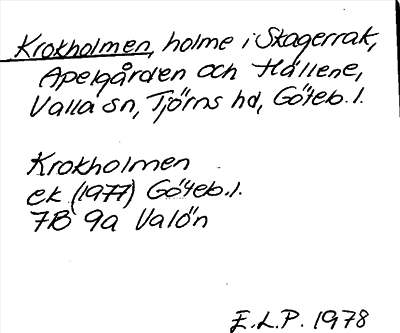 Krokholmen, holme i Skagerrak,
Apelgården och Hällene,
Valla sn, Tjörns hd, Göteb. l.
Krokholmen
ek (1977) Göteb. l.
7B 9a Valön
E.L.P. 1978